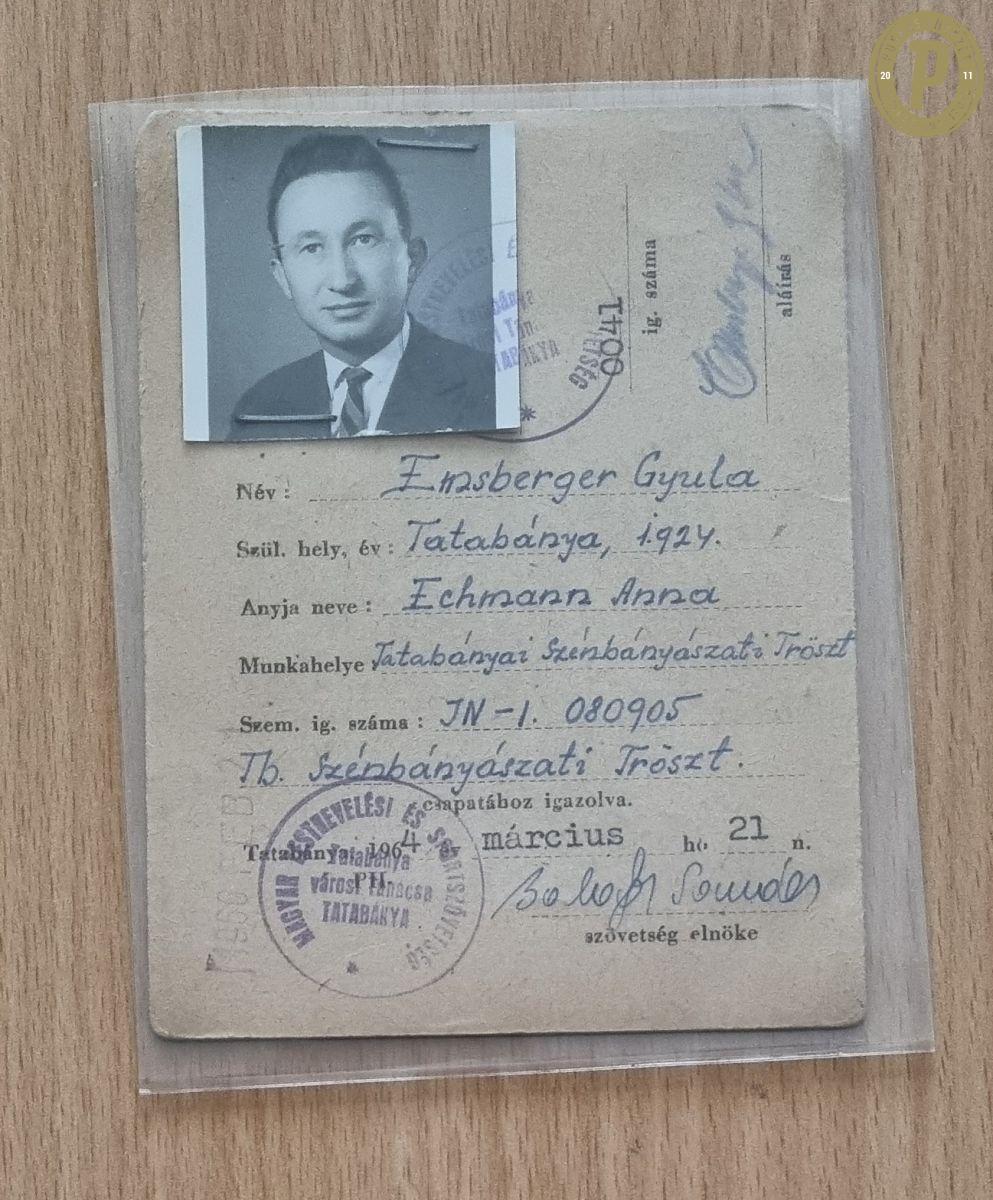 20 P 11
0041
ig. száma
aláírás
Név : Emsberger Gyula
Szül. hely, év : Tatabánya, 1924.
Anyja neve : Echmann Anna
Munkahelye : Tatabányai Szénbányászati Tröszt
Szem. ig. száma : JN-1. 080905
Tb. Szénbányászati Tröszt.
csapatához igazolva.
Tatabánya, 1964 év március hó 21 n.
PH.
MAGYAR TESTNEVELÉSI ÉS SPORTSZÖVETSÉG
Tatabánya
városi Tanácsa
TATABÁNYA
szövetség elnöke